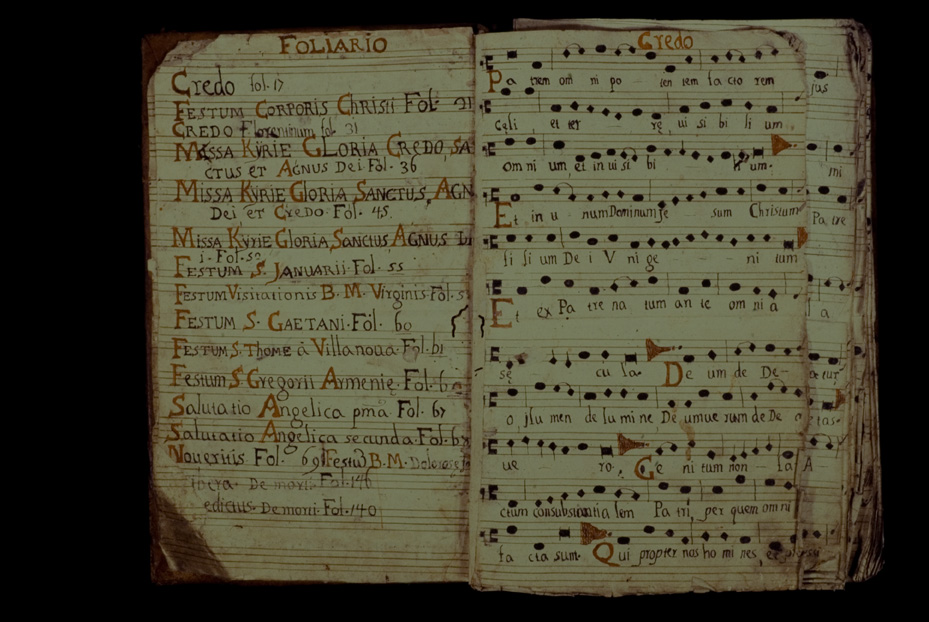 FOLIARIO
Credo fol. 17
FESTUM CORPORIS Christi Fol. 21
CREDO Florentinum fol. 31
MISSA KYRIE GLORIA CREDO, SA
CTUS et AGNUS Dei Fol. 36
MISSA KYRIE GLORIA SANCTUS, AGN
Dei et CREDO. Fol. 45.
MISSA KYRIE GLORIA, SANCTUS, AGNUS D
i. Fol.
FESTUM S. JANUARII. Fol. 55
FESTUM Visitationis B. M. Virginis. Fol. 5
FESTUM S. GAETANI. Fol. 60
FESTUM S. Thome à Villanoua. Fol. 61
Festum S Gregorii Armenie. Fol. 6
Salutatio Angelica pma Fol. 67
Salutatio Angelica secunda. Fol. 6
Noueritis Fol. 69 Festū B. M. Dolorose
ibera. De morti. Fol. 146
edictus. De morti. Fol. 140
Credo
Pa trem om ni po ten tem fa cto rem
cęli et ter rę, ui si bi li um
om ni um, et in ui si bi li um.
Et in u num Dominum Je sum Christum
fi li um De i V ni ge ni tum
Et ex Pa tre na tum an te om ni a
sę cu la. De um de De-
o, lu men de lu mi ne De um ue rum de De o
ue ro. Ge ni tum non fa
ctum consubstantia lem Pa tri, per quem om ni
fa cta sum. Qui propter nos ho mi nes et
jus
mi
Pa tre